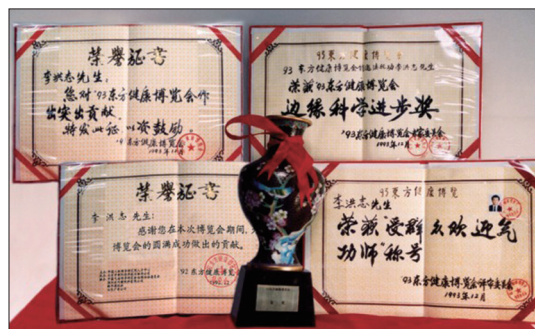 荣誉证书
李洪志先生:
您对'93东方健康博览会作
出突出贡献。
特发此证,以资鼓励。
'93东方健康博览会
1993年12月
93东方健康博览会
李洪志先生:
荣获'93东方健康博览会
边缘科学进步奖
'93东方健康博览会
1993年12月
荣誉证书
李洪志先生:
感谢您在本次博览会期间,
博览会的圆满成功做出的贡献。
'92东方健康博览
1992.12
93东方健康博览
李洪志先生:
荣获"受群众欢迎气
功师"称号
93东方健康博览会评审委员会
1993年12月